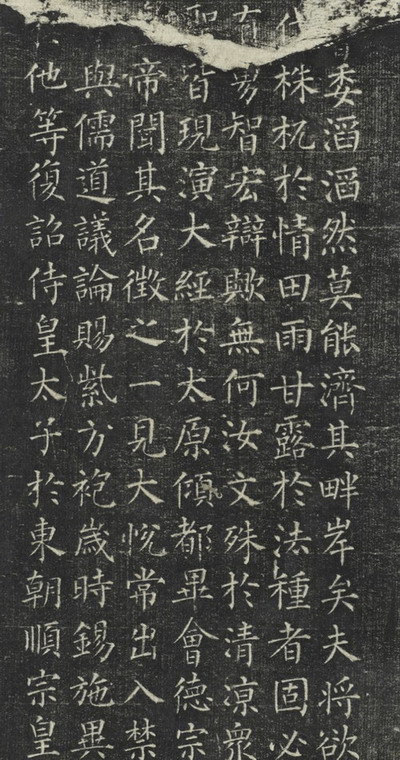 委滔滔然莫能濟其畔岸矣夫將欲
伐株杌於情田雨甘露於法種者固必
有勇智宏辯歟無何汝文殊於清涼衆
聖皆現演大經於太原傾都畢會德宗
帝聞其名徵之一見大悅常出入禁
與儒道議論賜紫方袍歲時錫施異
他等復詔侍皇太子於東朝順宗皇